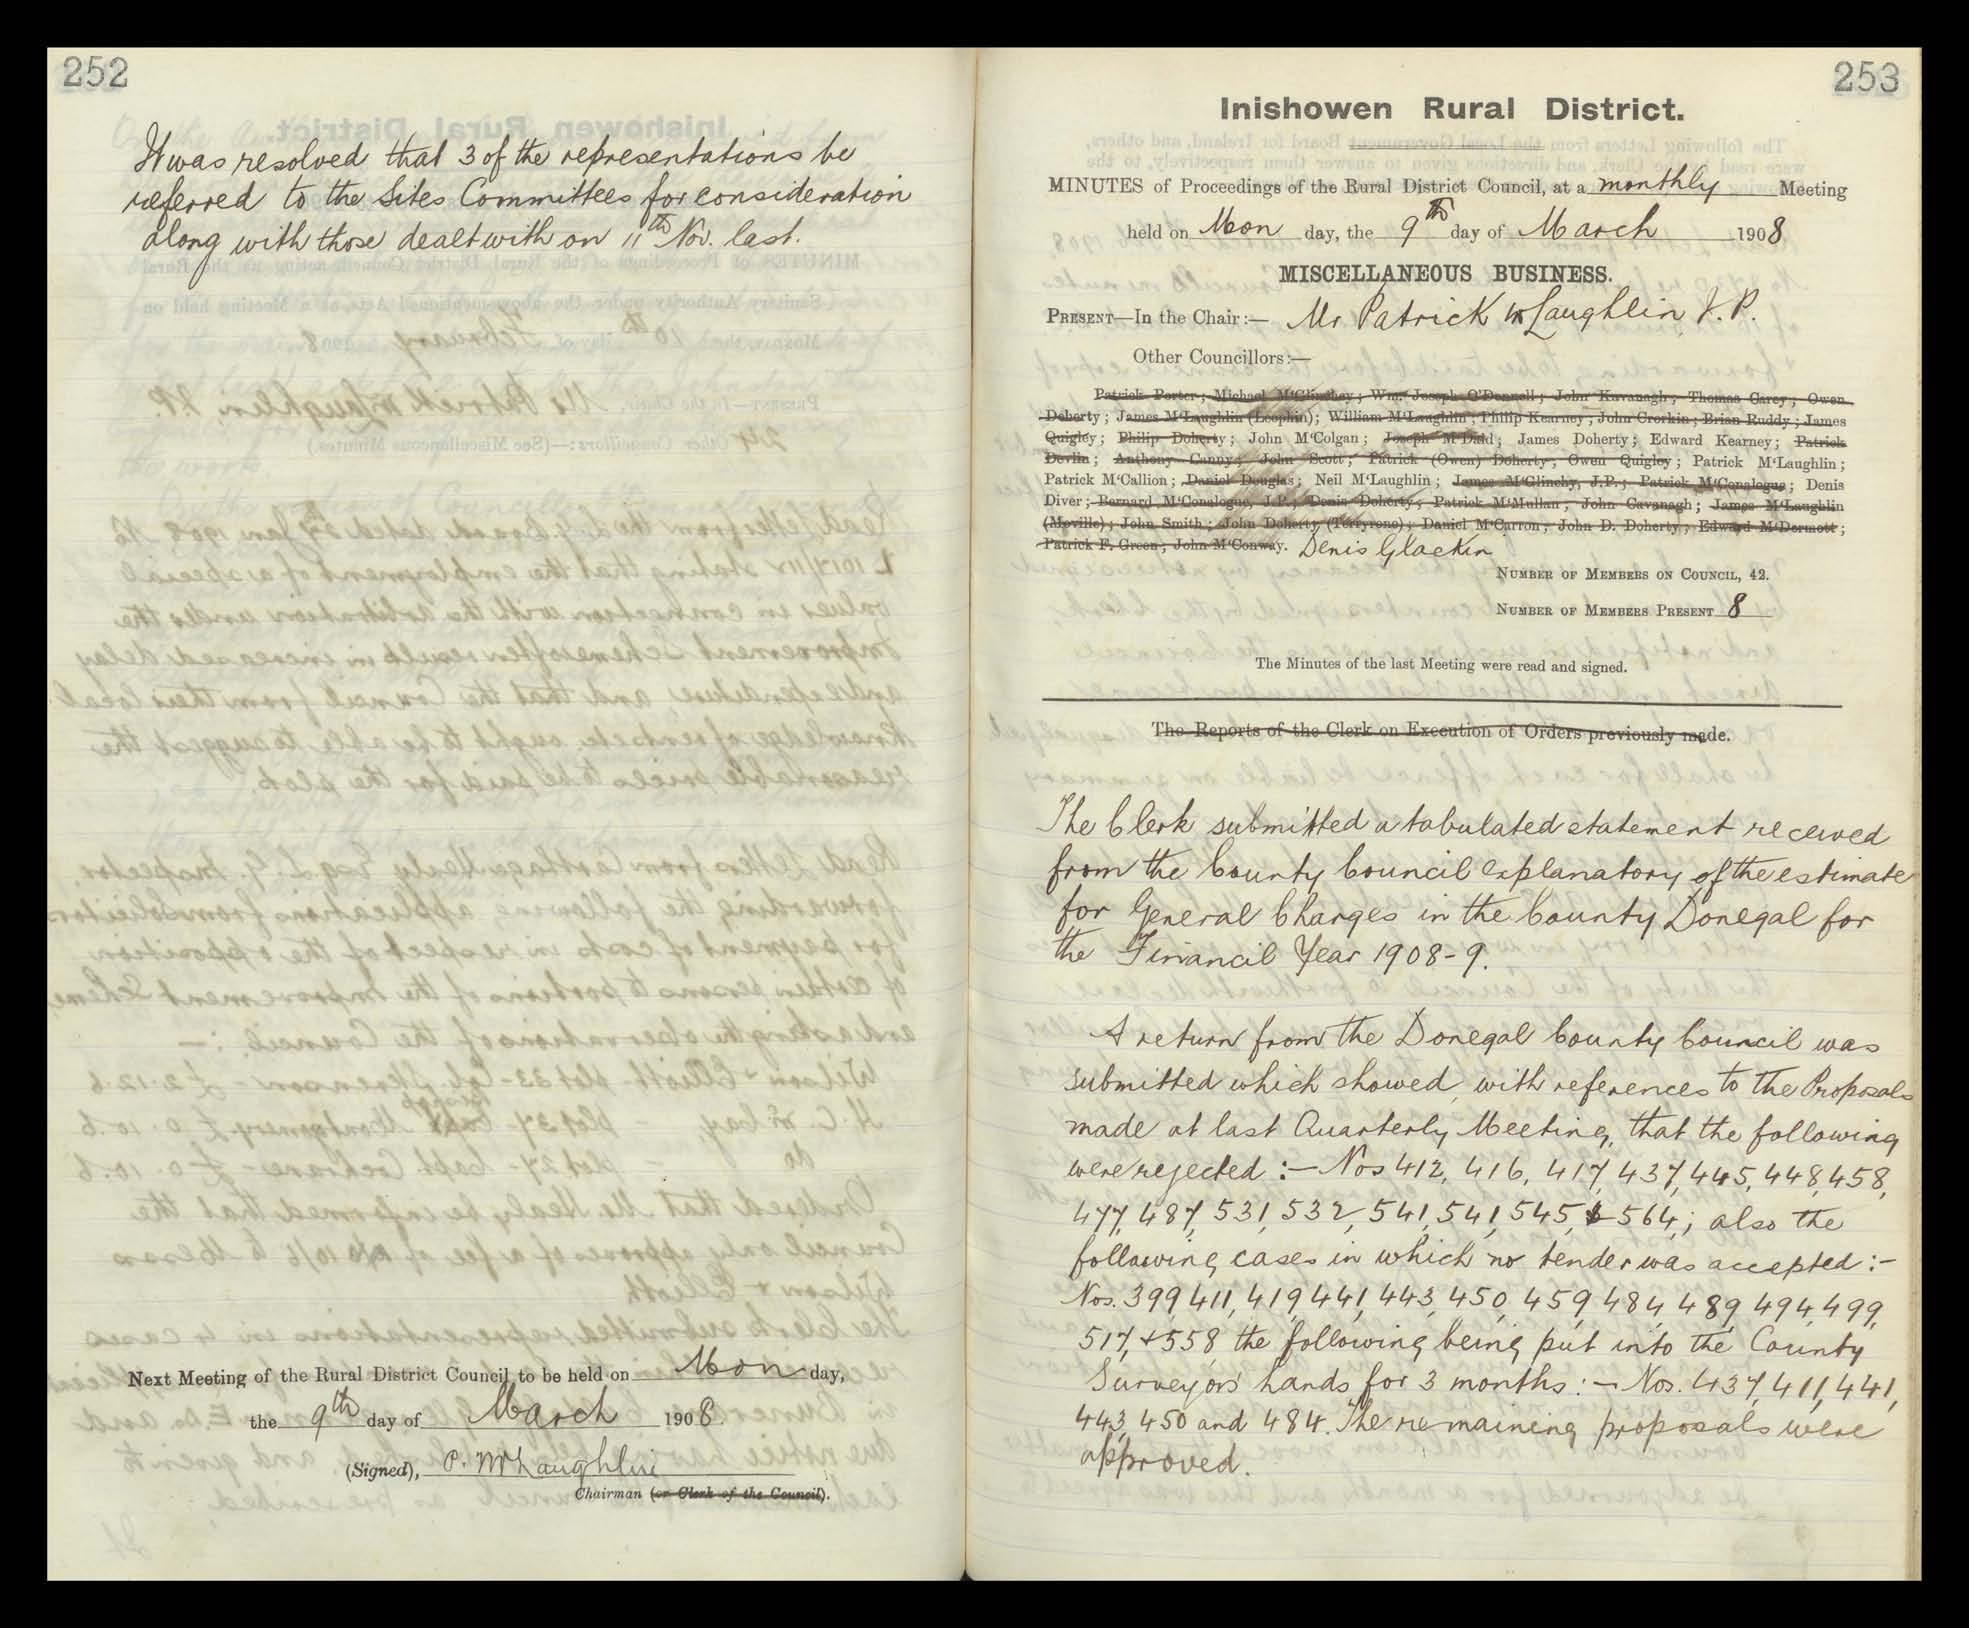 252
It was resolved that 3 of the representations be
referred to the Sites Committees for consideration
along with those dealt with on 11th Nov. last.
Next Meeting of the Rural District Council to be held on Mon day,
the 9th day of March 1908.
(Signed), P. McLaughlin
Chairman (or Clerk of the Council).
253
Inishowen Rural District.
MINUTES of Proceedings of the Rural District Council, at a monthly Meeting
held on Mon day, the 9th day of March 1908
MISCELLANEOUS BUSINESS.
PRESENT—In the Chair:— Mr Patrick McLaughlin J.P.
Other Councillors:—
Patrick Porter; Michael M'Glinchey; Wm. Joseph O'Donnell; John Kavanagh; Thomas Carey; Owen
Doherty; James M'Laughlin (Leophin); William M'Laughlin; Philip Kearney; John Crorkin; Brian Ruddy; James
Quigley; Philip Doherty; John M'Colgan; Joseph M'Daid; James Doherty; Edward Kearney; Patrick
Devlin; Anthony Canny; John Scott; Patrick (Owen) Doherty; Owen Quigley; Patrick M'Laughlin;
Patrick M'Callion; Daniel Douglas; Neil M'Laughlin; James M'Glinchy, J.P.; Patrick M'Conalogue; Denis
Diver; Bernard M'Conalogue, J.P.; Denis Doherty; Patrick M'Mullan; John Cavanagh; James M'Laughlin
(Moville); John Smith; John Doherty (Terryrone); Daniel M'Carron; John D. Doherty; Edward M'Dermott;
Patrick F. Green; John M'Conway. Denis Glackin
NUMBER OF MEMBERS ON COUNCIL, 42.
NUMBER OF MEMBERS PRESENT 8
The Minutes of the last Meeting were read and signed.
The Reports of the Clerk on Execution of Orders previously made.
The Clerk submitted a tabulated statement received
from the County Council explanatory of the estimate
for General Charges in the County Donegal for
the Financil Year 1908-9.
A return from the Donegal County Council was
submitted which showed, with references to the Proposals
made at last Quarterly Meeting, that the following
were rejected :— Nos 412, 416, 417, 437, 445, 448, 458,
477, 487, 531, 532, 541, 541, 545, & 564; also the
following cases in which no tender was accepted :-
Nos. 399, 411, 419, 441, 443, 450, 459, 484, 489, 494, 499,
517, + 558 the following being put into the County
Surveyors' hands for 3 months :— Nos. 437, 411, 441,
443, 450 and 484. The remaining proposals were
approved.